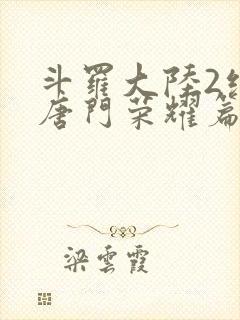 斗羅大陸2
唐門榮耀篇
梁雲霞